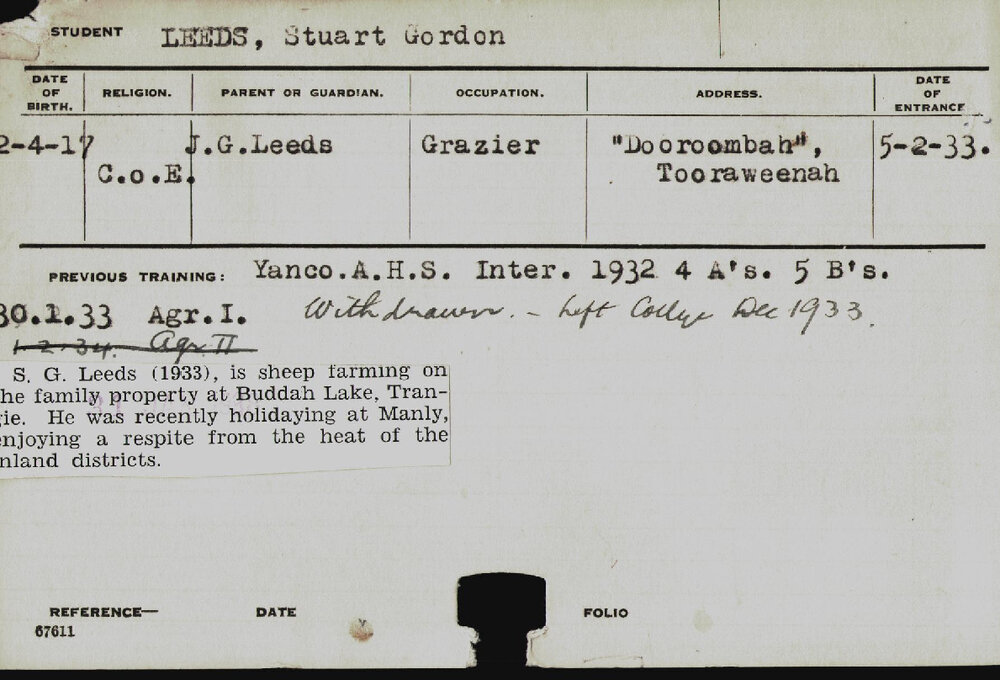 STUDENT LEEDS, Stuart Gordon
DATE OF BIRTH. RELIGION. PARENT OR GUARDIAN. OCCUPATION. ADDRESS. DATE OF ENTRANCE
2-4-17 J.G.Leeds Grazier "Dooroombah", 5-2-33.
C.o.E. Tooraweenah
PREVIOUS TRAINING: Yanco.A.H.S. Inter. 1932 4 A's. 5 B's.
30.1.33 Agr.I. Withdrawn. - Left College Dec 1933.
1-2-34. Agr II
S. G. Leeds (1933), is sheep farming on
he family property at Buddah Lake, Tran-
gie. He was recently holidaying at Manly,
enjoying a respite from the heat of the
nland districts.
REFERENCE— DATE FOLIO
67611